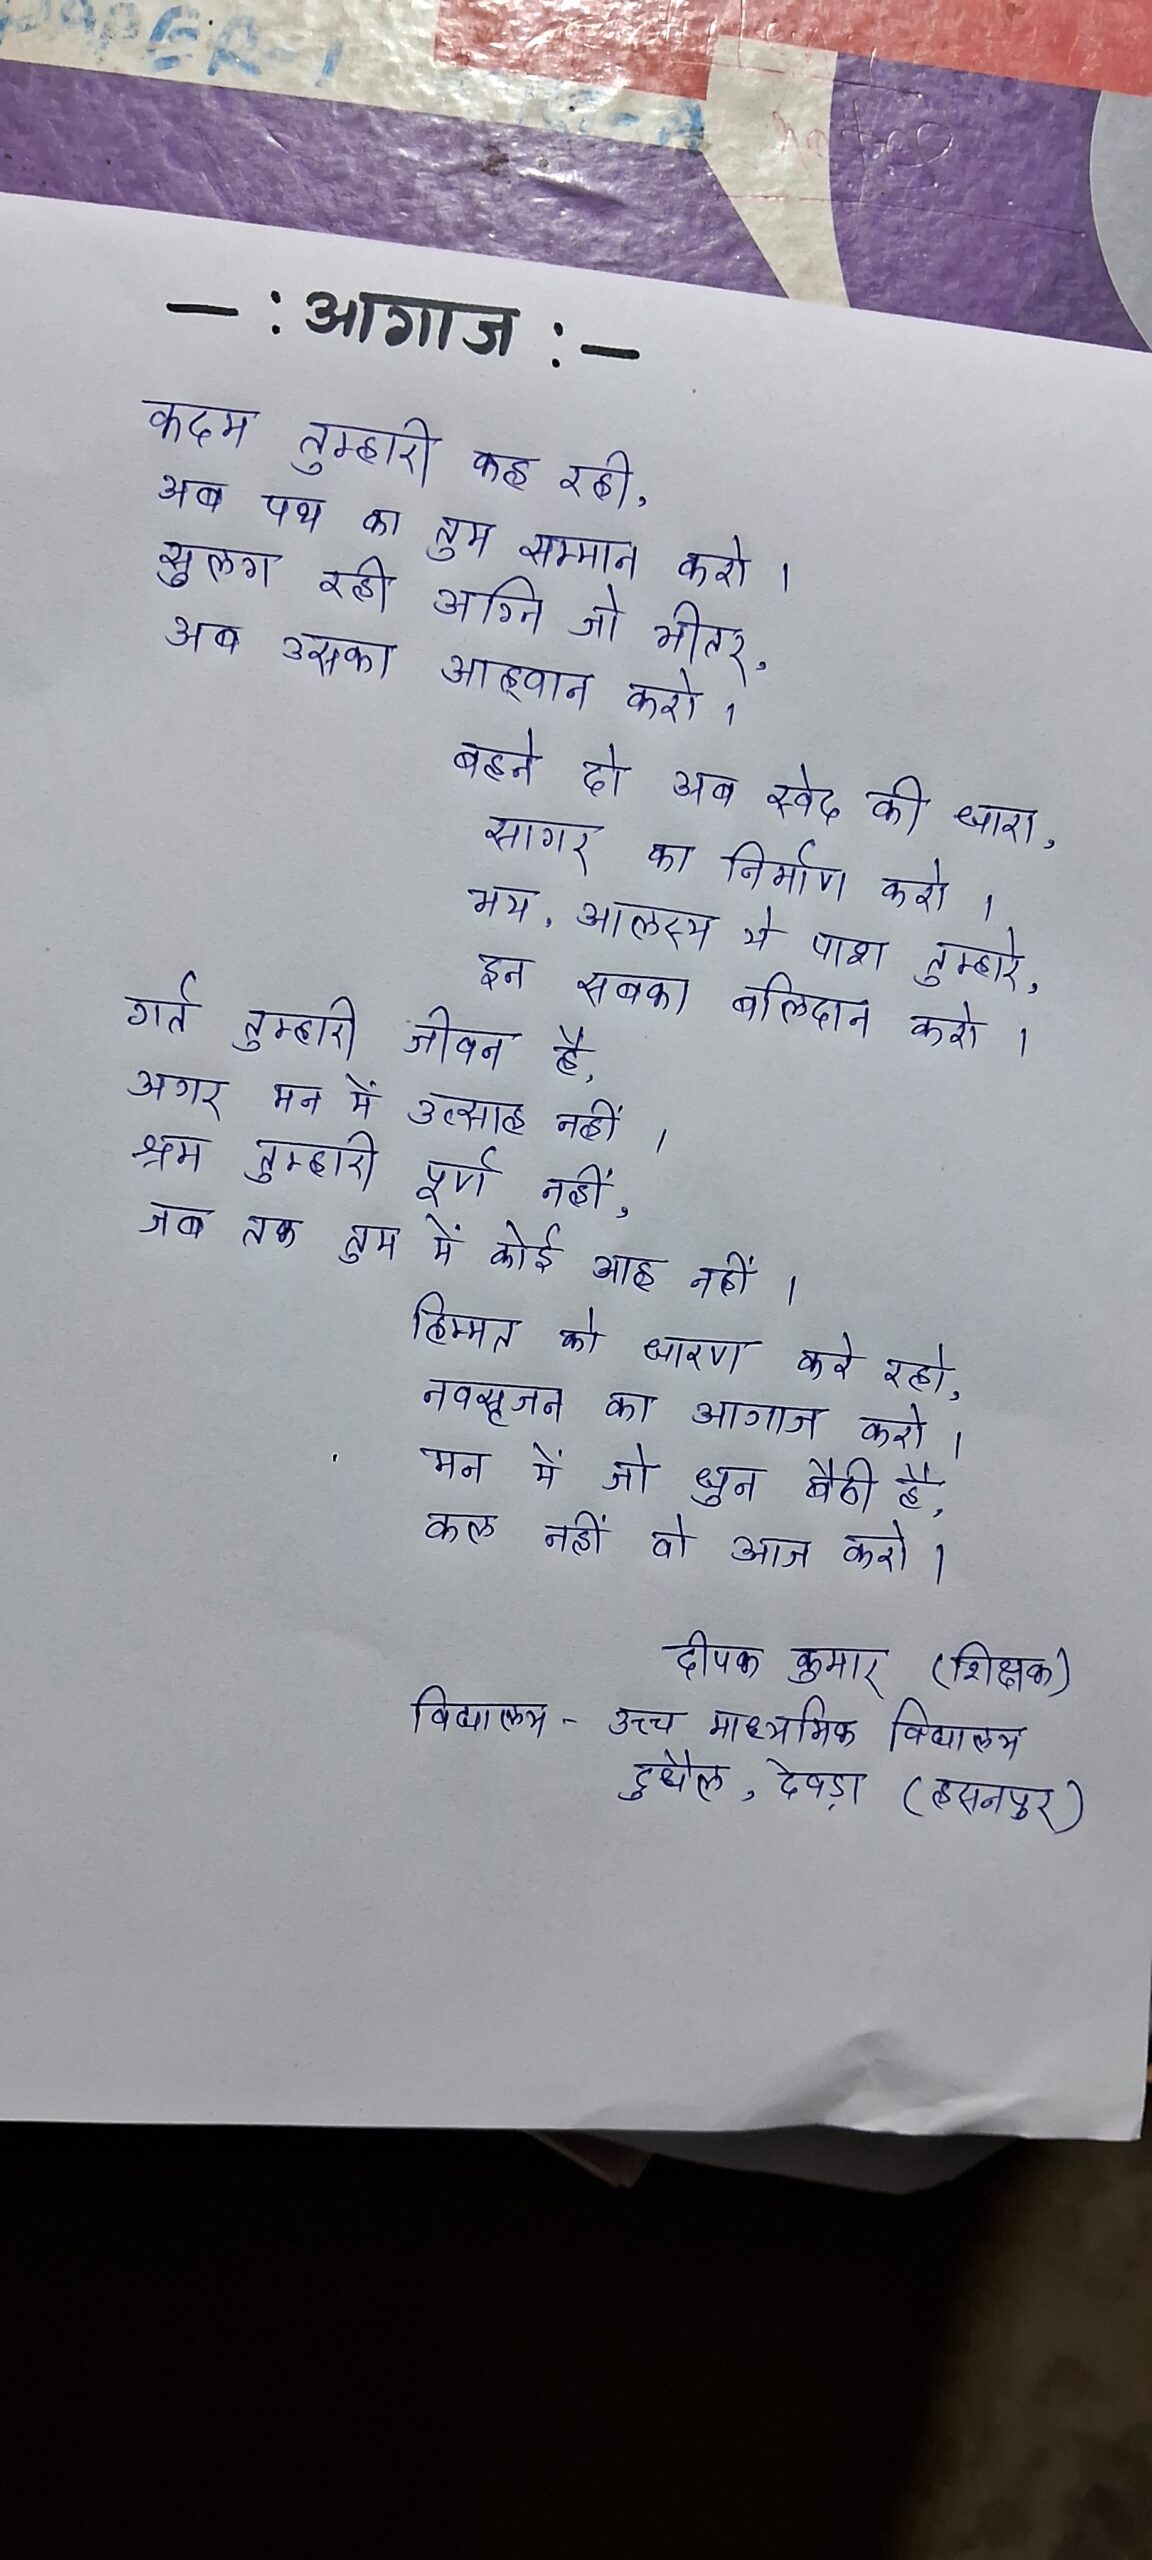 PAPER-1
—: आगाज :—
कदम तुम्हारी कह रही,
अब पथ का तुम सम्मान करो।
सुलग रही अग्नि जो भीतर,
अब उसका आह्वान करो।
बहने दो अब स्वेद की धारा,
सागर का निर्माण करो।
भय, आलस्य ये पाश तुम्हारे,
इन सबका बलिदान करो।
गर्त तुम्हारी जीवन है,
अगर मन में उत्साह नहीं।
श्रम तुम्हारी पूर्ण नहीं,
जब तक तुम में कोई आह नहीं।
हिम्मत को धारण करे रहो,
नवसृजन का आगाज करो।
मन में जो धुन बैठी है,
कल नहीं वो आज करो।
दीपक कुमार (शिक्षक)
विद्यालय - उच्च माध्यमिक विद्यालय
दुधैल, देवड़ा (हसनपुर)